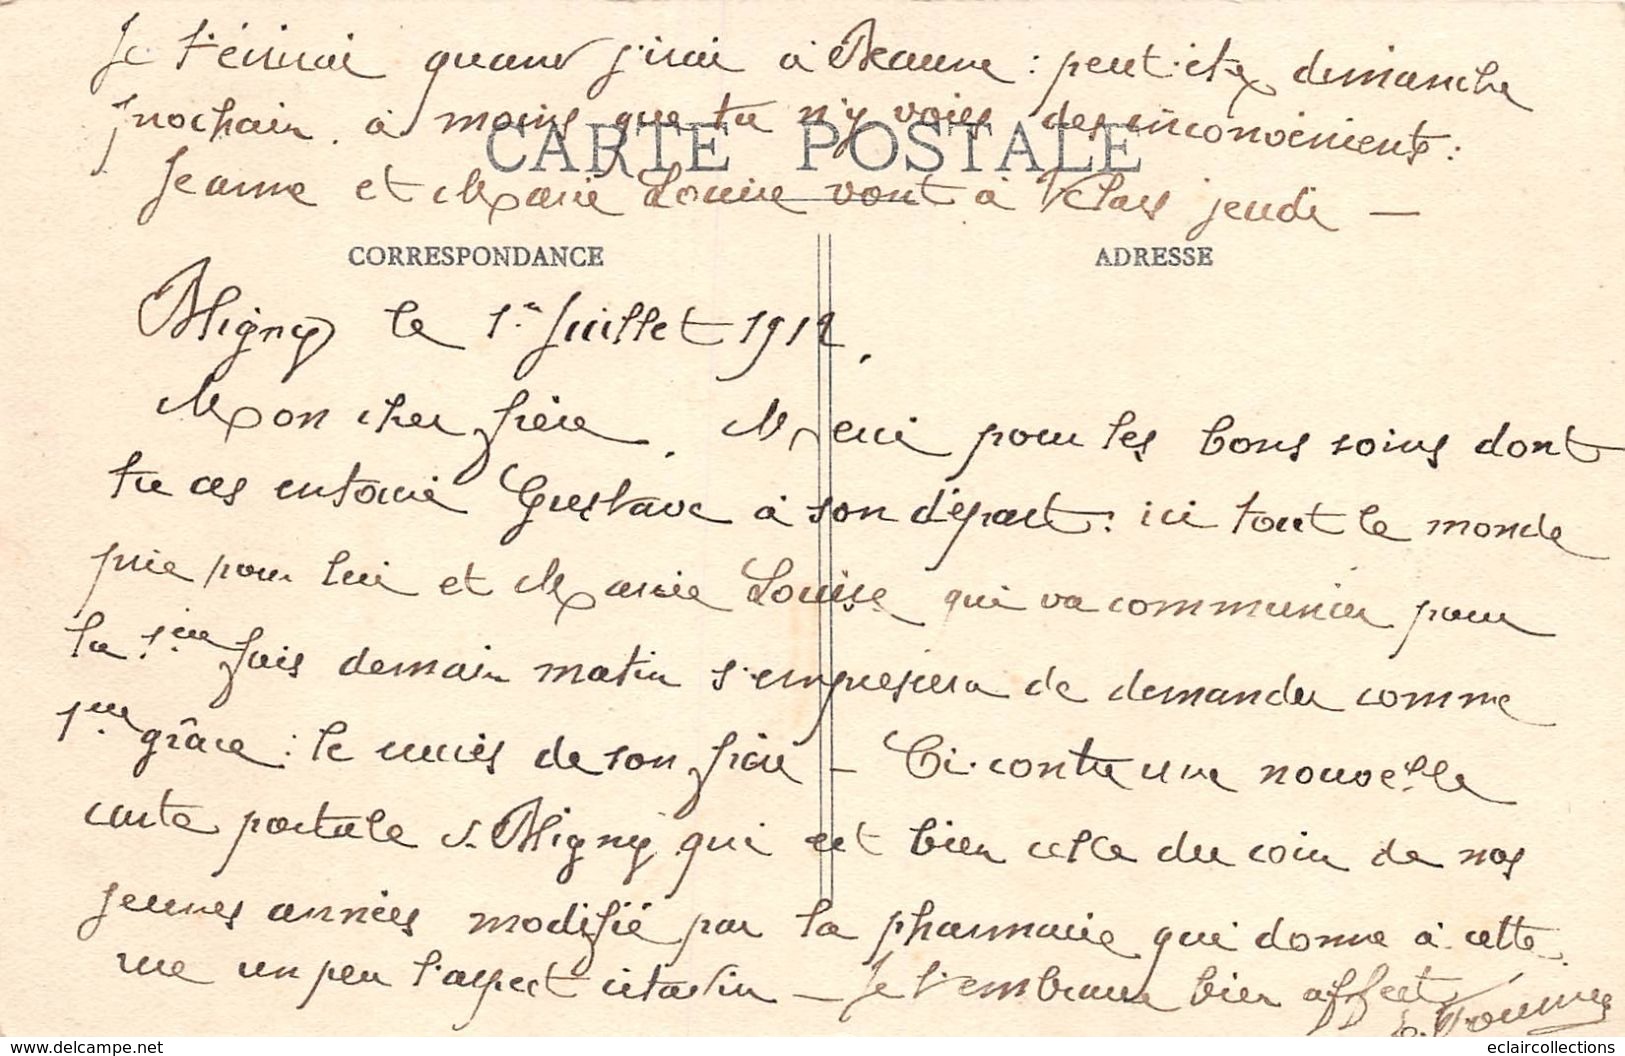 Je t'écrirai quand j'irai à Beaune : peut-être dimanche
prochain. à moins que tu n'y voies des inconvénients :
CARTE POSTALE
Jeanne et Marie Louise vont à Velars jeudi —
CORRESPONDANCE ADRESSE
Bligny le 1er Juillet 1912.
Mon cher frère. Merci pour les bons soins dont
tu as entouré Gustave à son départ : ici tout le monde
prie pour lui et Marie Louise qui va communier pour
la 1ère fois demain matin s'empressera de demander comme
1ère grâce : le succès de son frère — Ci-contre une nouvelle
carte postale de Bligny qui est bien celle du coin de nos
jeunes années modifié par la pharmacie qui donne à cette
rue un peu l'aspect citadin — Je t'embrasse bien affect
eclaircollections